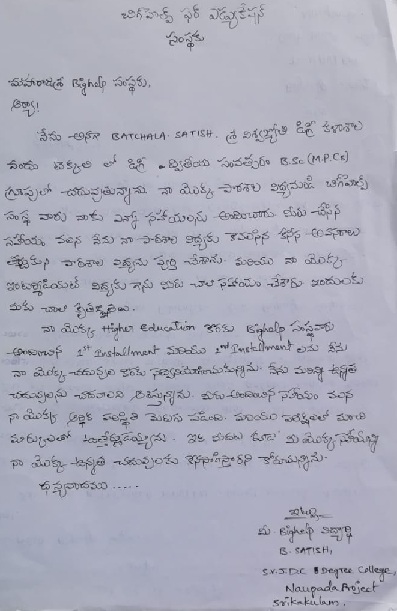 బిగ్‌హెల్ప్ ఫర్ ఎడ్యుకేషన్
సంస్థకు
మహారాజశ్రీ Bighelp సంస్థకు,
ఆర్యా!
నేను అనగా BATCHALA. SATISH. శ్రీ విశ్వజ్యోతి డిగ్రీ కళాశాల
నందు టెక్కలి లో డిగ్రీ ద్వితీయ సంవత్సరం B.Sc (M.P.Cs)
గ్రూపులో చదువుతున్నాను. నా యొక్క పాఠశాల విద్యనుండి బిగ్‌హెల్ప్
సంస్థ వారు నాకు ఎన్నో సహాయాలను అందించారు. మీరు చేసిన
సహాయం వలన నేను నా పాఠశాల విద్యకు కావలసిన కనీస అవసరాలు
తీర్చుకుని పాఠశాల విద్యను పూర్తి చేశాను. మరియు నా యొక్క
ఇంటర్మీడియట్ విద్యకు గాను మీరు చాల సహాయం చేశారు. ఇందులకు
మీకు చాల కృతజ్ఞతలు.
నా యొక్క Higher Education కొరకు Bighelp సంస్థవారు
అందించిన 1st Installment మరియు 2nd Installment లను నేను
నా యొక్క చదువుల కొరకు సద్వినియోగించుకున్నాను. నేను మరిన్ని ఉన్నత
చదువులను చదవాలని ఆశిస్తున్నాను. మీరు అందించిన సహాయం వలన
నా యొక్క ఆర్థిక పరిస్థితి మెరుగు పడింది. మరియు పరీక్షలలో మంచి
మార్కులతో ఉత్తీర్ణుడనయ్యాను. ఇక ముందు కూడా మీ యొక్క సహాయాన్ని
నా యొక్క ఉన్నత చదువులకు కొనసాగిస్తారని కోరుకుంటున్నాను.
ధన్యవాదములు......
ఇట్లు
మీ Bighelp విద్యార్థి
B. SATISH,
S.V.J.D.C Degree College,
Naupada Project
Srikakulam.